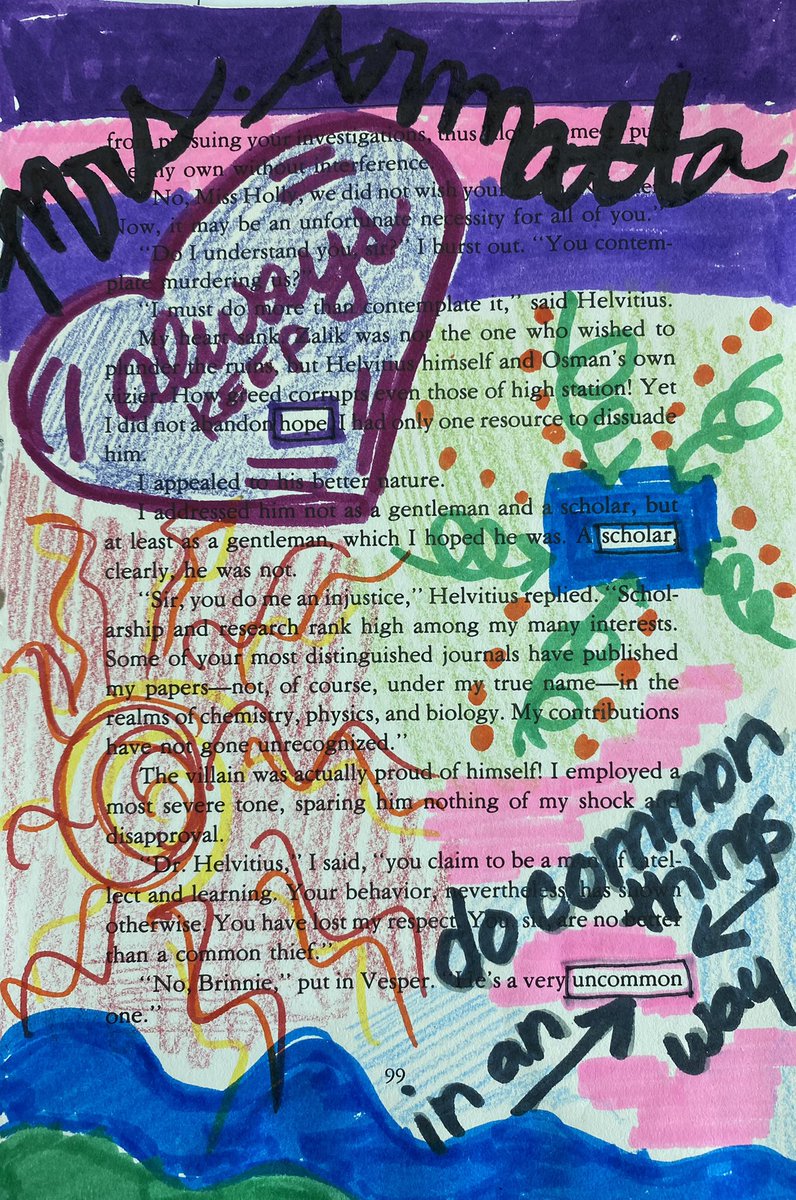 Mrs. Armatta
from pursuing your investigations, thus
my own without interference
"No, Miss Holly, we did not wish your
Now, it may be an unfortunate necessity for all of you."
"Do I understand you, sir?" I burst out. "You contem-
plate murdering us?"
"I must do more than contemplate it," said Helvitius.
My heart sank. Zalik was not the one who wished to
plunder the ruins, but Helvitius himself and Osman's own
vizier. How greed corrupts even those of high station! Yet
I did not abandon hope. I had only one resource to dissuade
him.
I always
KEEP
I appealed to his better nature.
I addressed him not as a gentleman and a scholar, but
at least as a gentleman, which I hoped he was. A scholar,
clearly, he was not.
"Sir, you do me an injustice," Helvitius replied. "Schol-
arship and research rank high among my many interests.
Some of your most distinguished journals have published
my papers—not, of course, under my true name—in the
realms of chemistry, physics, and biology. My contributions
have not gone unrecognized."
The villain was actually proud of himself! I employed a
most severe tone, sparing him nothing of my shock and
disapproval.
"Dr. Helvitius," I said, "you claim to be a man of intel-
lect and learning. Your behavior, nevertheless, has shown
otherwise. You have lost my respect. You, sir, are no better
than a common thief."
"No, Brinnie," put in Vesper. "He's a very uncommon
one."
do common
things
in an
way
99